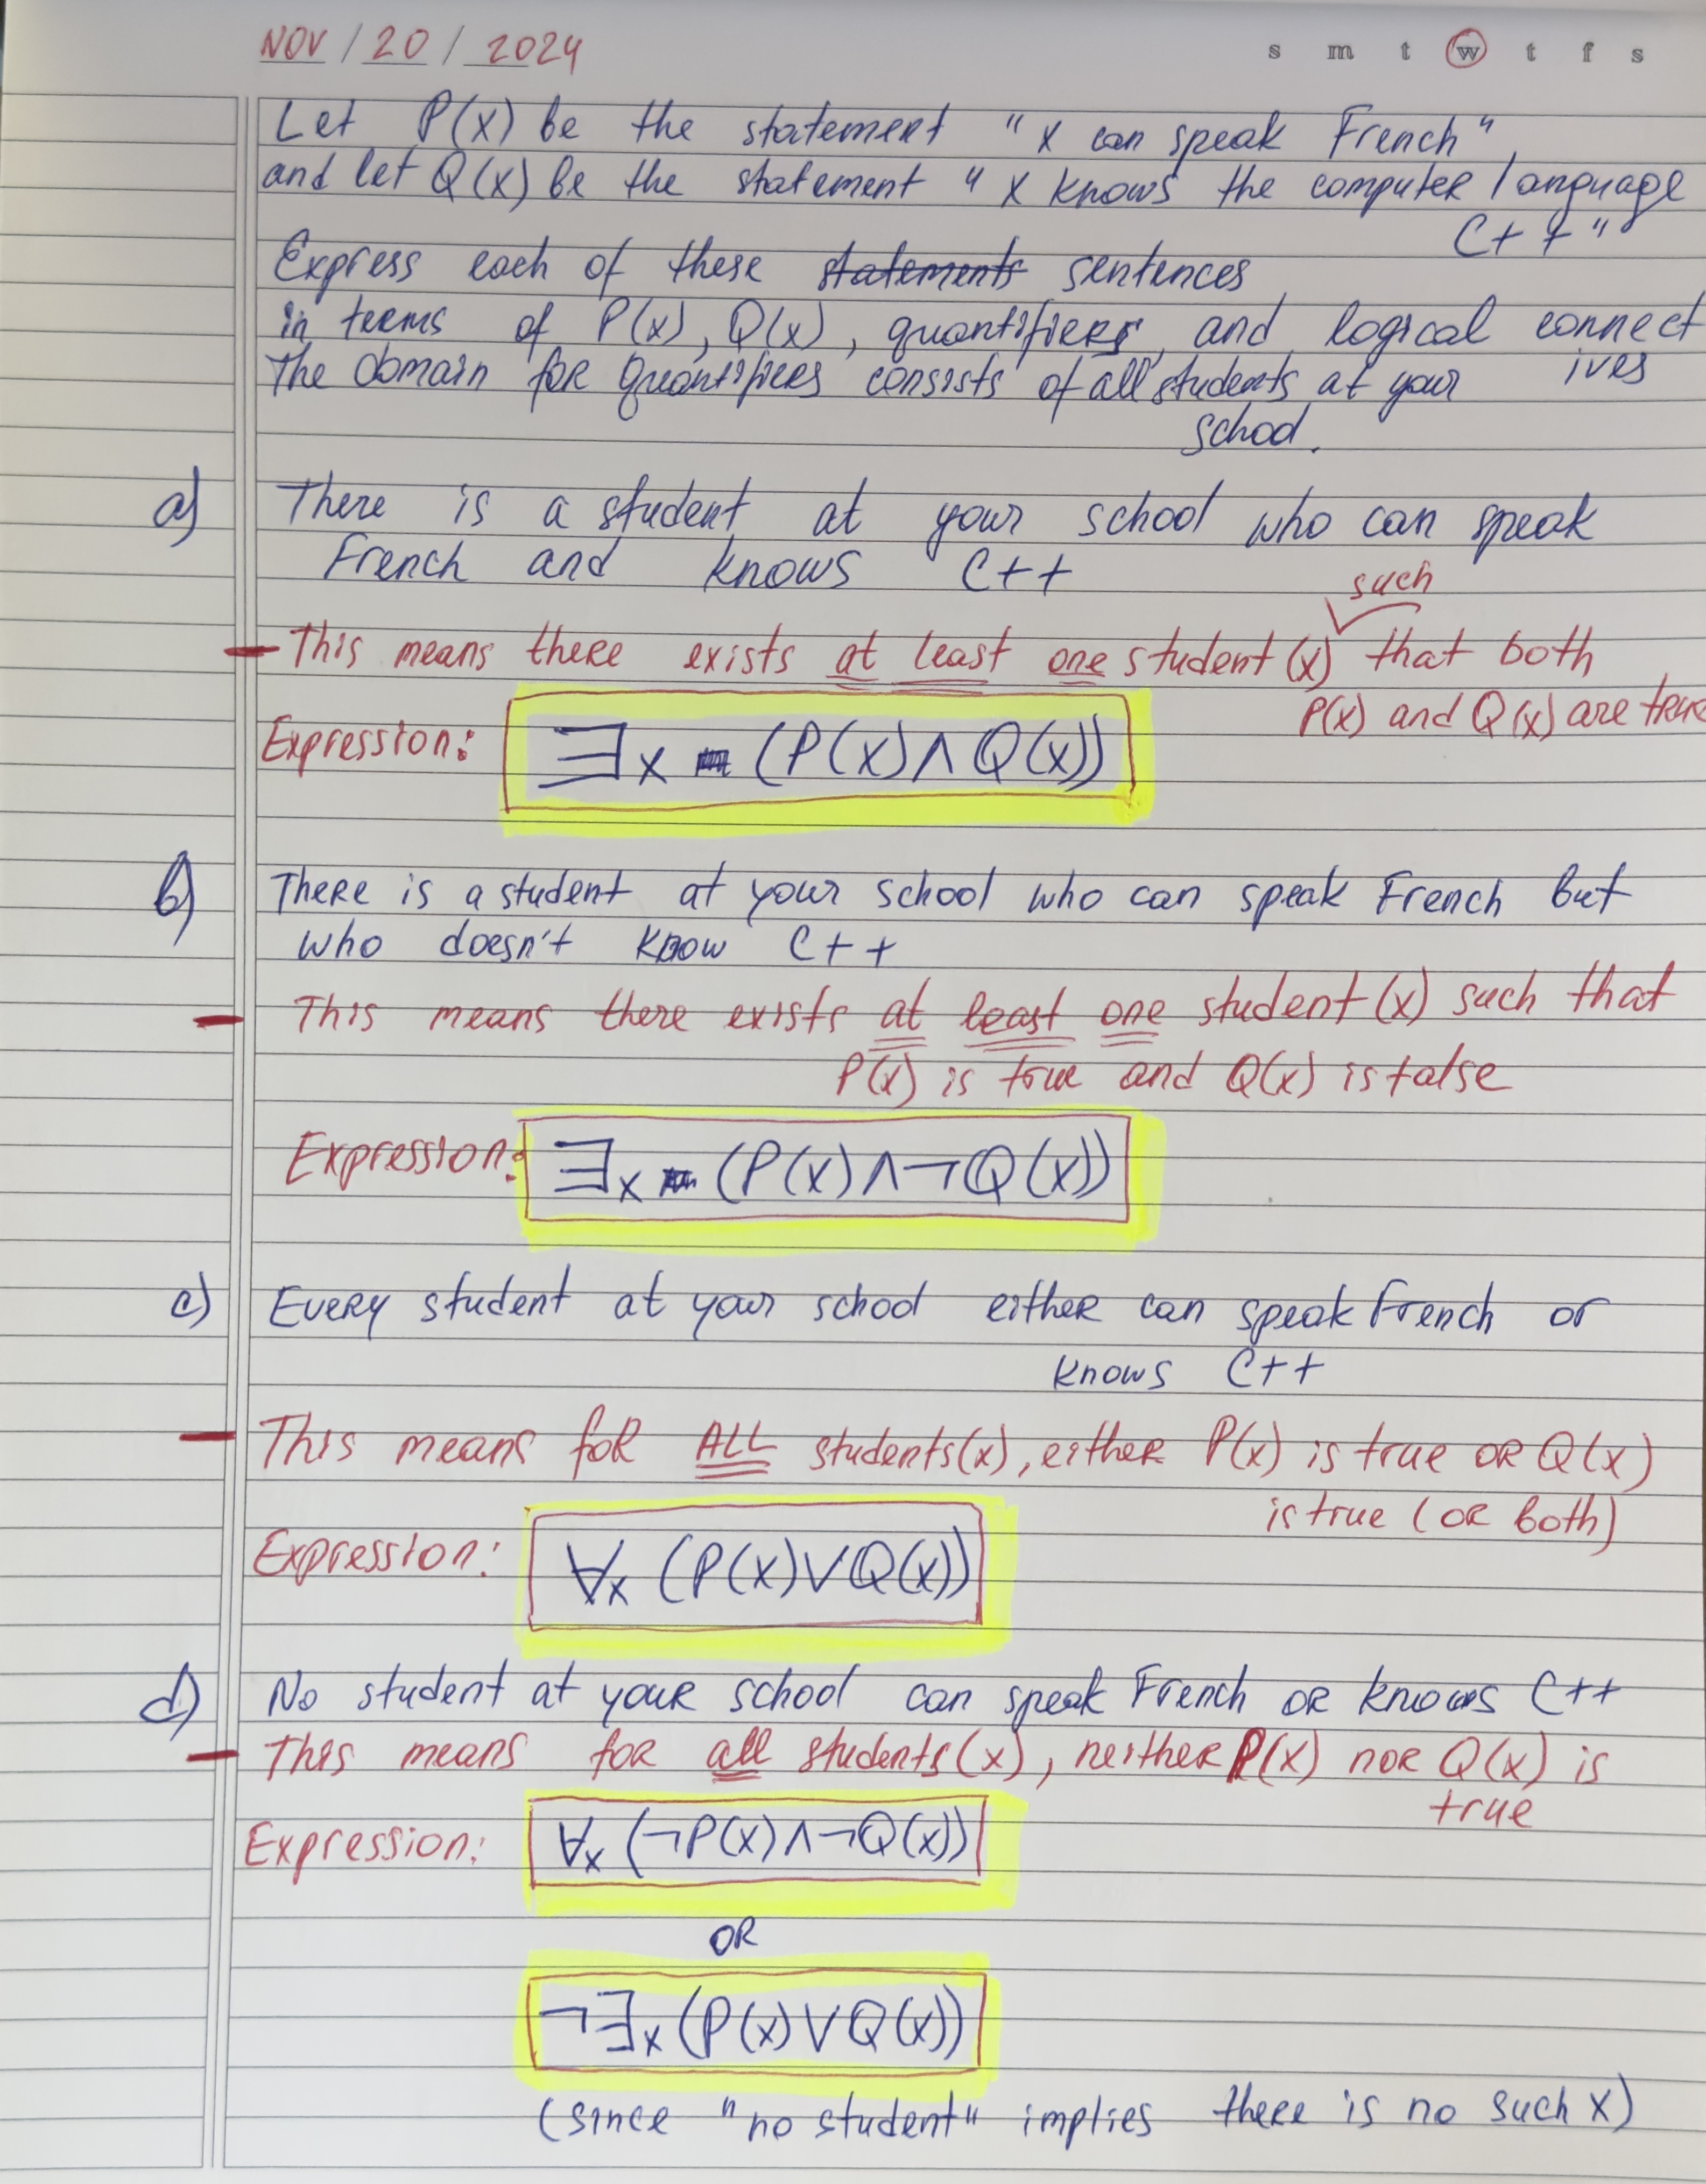 NOV / 20 / 2024 s m t w t f s
Let P(x) be the statement "x can speak French"
and let Q(x) be the statement "x knows the computer language
C++"
Express each of these statements sentences
in terms of P(x), Q(x), quantifiers, and logical connect
The domain for quantifiers consists of all students at your ives
school.
a) There is a student at your school who can speak
French and knows C++
such
- This means there exists at least one student (x) that both
P(x) and Q(x) are true
Expression: ∃x (P(x)∧Q(x))
b) There is a student at your school who can speak French but
who doesn't know C++
- This means there exists at least one student (x) such that
P(x) is true and Q(x) is false
Expression: ∃x (P(x)∧¬Q(x))
c) Every student at your school either can speak French or
knows C++
- This means for ALL students(x), either P(x) is true OR Q(x)
is true (or both)
Expression: ∀x (P(x)∨Q(x))
d) No student at your school can speak French or knows C++
- This means for all students(x), neither P(x) nor Q(x) is
true
Expression: ∀x (¬P(x)∧¬Q(x))
OR
¬∃x (P(x)∨Q(x))
(since "no student" implies there is no such x)